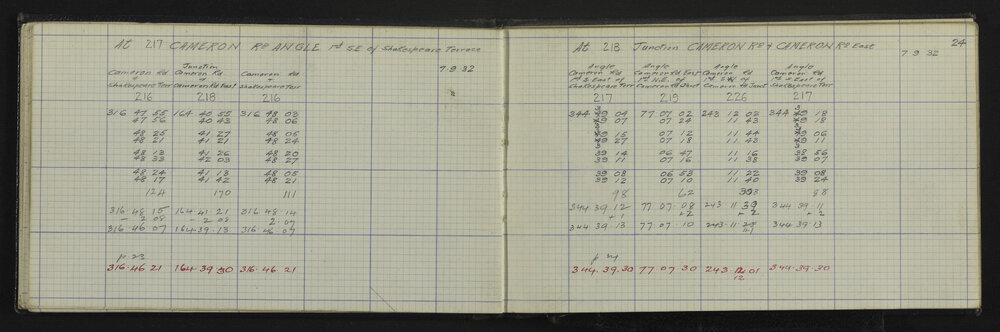 At 217 CAMERON Rd ANGLE 1st S.E of Shakespeare Terrace
7 9 32
Junction
Cameron Rd Cameron Rd Cameron Rd
& & &
Shakespeare Terr Cameron Rd East Shakespeare Terr
216 218 216
316 47 55 164 40 55 316 48 03
47 56 40 43 48 06
48 25 41 27 48 05
48 21 41 21 48 24
48 13 41 26 48 20
48 33 42 03 48 27
48 24 41 13 48 05
48 17 41 42 48 21
124 170 111
316.48.15 164.41.21 316.48.14
- 2 08 - 2 08 2.07
316.46.07 164.39.13 316.46.07
p 23
316.46 21 164.39.30 316.46.21
At 218 Junction CAMERON Rd & CAMERON Rd East
7 9 32
24
Angle Angle Angle Angle
Cameron Rd Cameron Rd East Cameron Rd Cameron Rd
1st N.E. of 1st S.W of
Shakespeare Terr Cameron Rd Junct Cameron Rd Junct Shakespeare Terr
217 219 226 217
344 39 04 77 07 02 243 12 02 344 39 18
39 07 07 24 11 43 39 18
39 15 07 12 11 44 39 06
39 27 07 18 11 43 39 11
39 14 06 47 11 16 38 56
39 11 07 16 11 38 39 07
39 08 06 53 11 22 39 08
39 12 07 10 11 40 39 24
98 62 88
344.39.12 77.07.08 243.11 39 344.39.11
+1 +2 +2 +2
344.39.13 77.07.10 243.11 344.39.13
p 24
344.39.30 77.07.30 243. 01 344.39.30
12